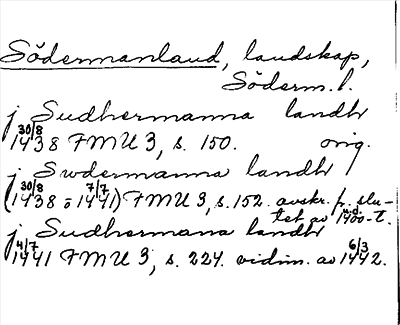 Södermanland, landskap,
Söderm. l.
j Sudhermanna landh
30/8 1438 FMU 3, s. 150. orig.
j Swdermanna landh
(30/8 1438 o 7/7 1441) FMU 3, s. 152. avskr. fr. slu-
tet av 1400-t.
j Sudhermana landh
4/7 1441 FMU 3, s. 224. vidim. av 6/3 1442.